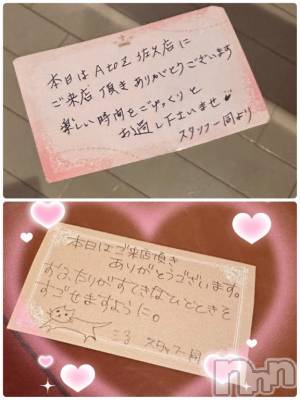 本日は AtoZ 佐文店に
ご来店 頂き ありがとうございます
楽しい時間をごゆっくりと
お過し下さいませ
スタッフ一同より
本日はご来店頂き
ありがとうございます。
おふたりがすてきなひとときを
すごせますように。
スタッフ一同
nn